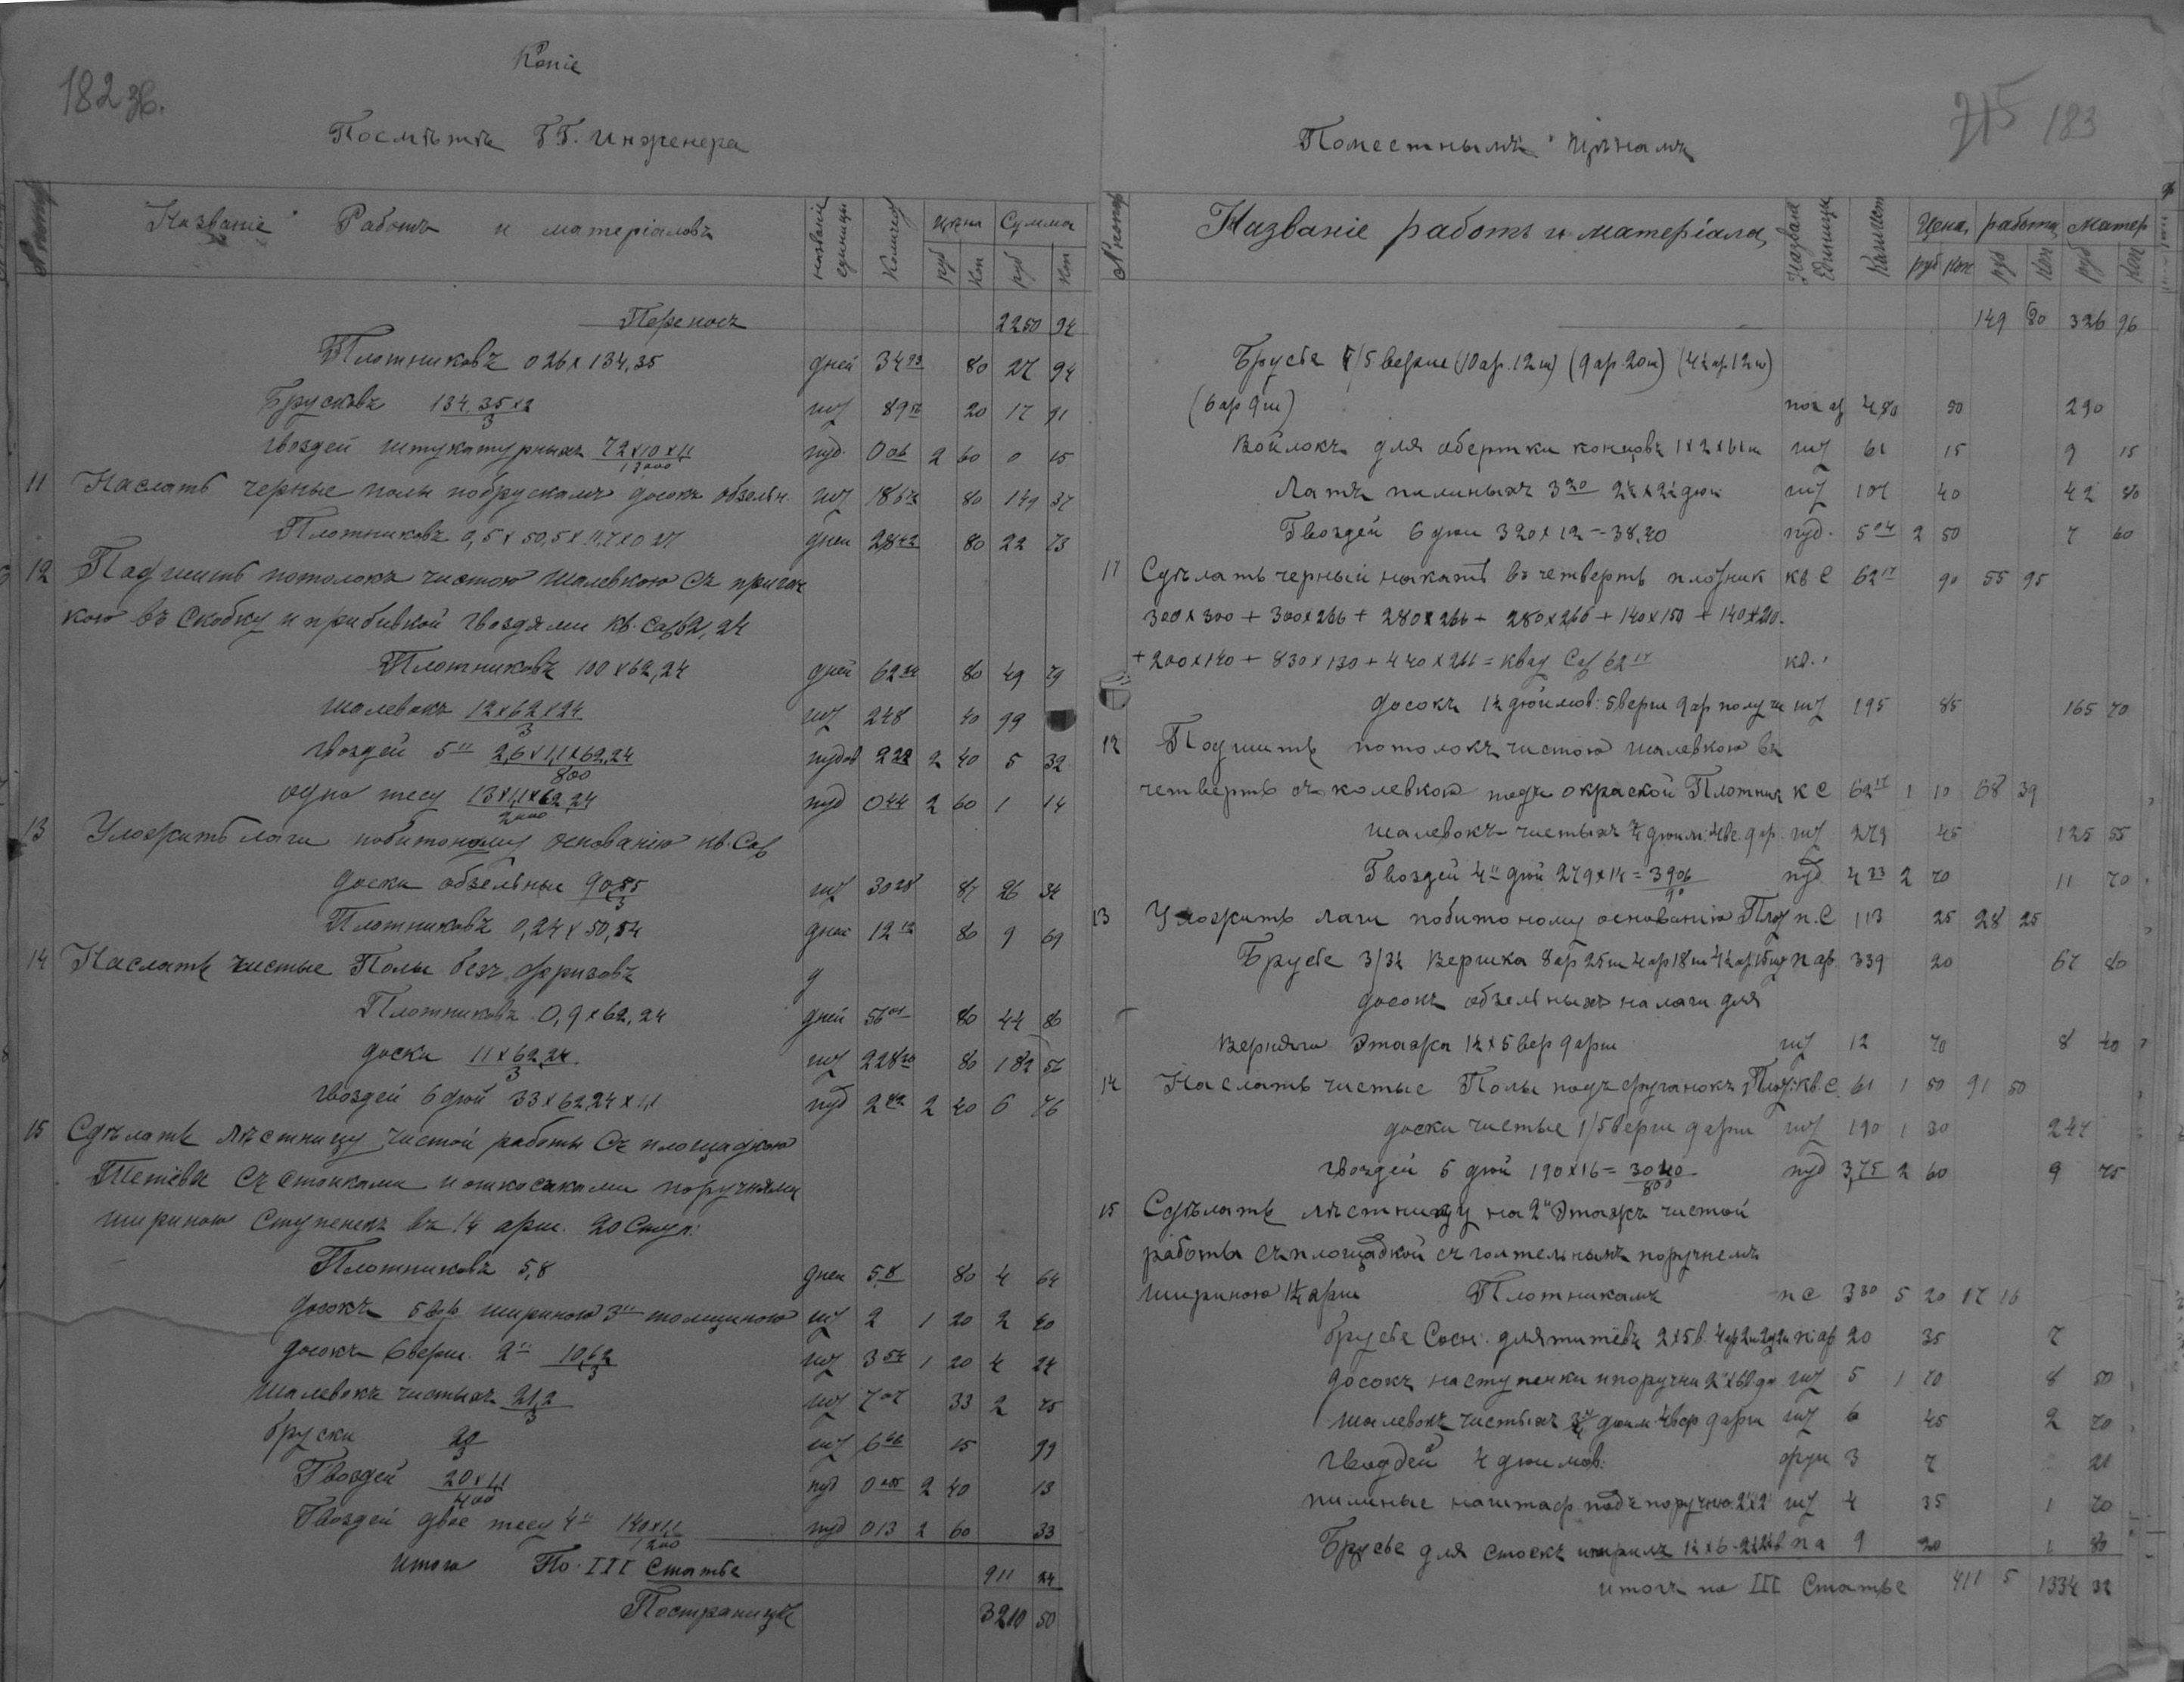 182 зв.
Копіе
Посмѣтѣ Г.Г. Инженера
Названіе Работъ и матеріаловъ
названіе единицы
Колич
цѣна Сумма
руб Коп руб Коп
Переносъ 2250 94
Плотниковъ 0 26 х 134,35 дней 34 93 80 27 94
Брусковъ 134,35х2/3 шт 89 57 20 17 91
гвоздей штукатурныхъ 72х10х11/17000 пуд. 0 06 2 60 0 15
11 Наслать черные полы побрускамъ досокъ обзельн. шт 186 78 80 149 37
Плотниковъ 0,5 х 50,5 х дней 28 42 80 22 73
12 Подшить потолокъ чистою Шалевкою Съ пригон
кою въ Скобку и прибивкой гвоздями кв. саж 62,24
Плотниковъ 100 х 62,24 дней 62 24 80 49 79
шалевокъ 12х62х24/3 шт 248 40 99
гвоздей 5" 2,6х1,1х62,24/800 пудов 2 22 2 40 5 32
одно тесу 13х1,1х62,24/2000 пуд 0 44 2 60 1 14
13 Уложить лаги побитоному основанію кв. Саж
доски обзельные 90,85/3 шт 30 28 87 26 34
Плотниковъ 0,24 х 50,54 дней 12 12 80 9 69
14 Наслать чистые Полы безъ фризовъ
Плотниковъ 0,9 х 62,24 дней 56 01 80 44 80
доски 11 х 62,24/3 шт 228 20 80 182 56
гвоздей 6 дюй 33 х 62,24 х 1,1 пуд 2 82 2 40 6 76
15 Сдѣлать лѣстницу чистой работы Съ площадкою
Тетёва Съ стойками и откосиками поручнями
шириною Ступенекъ въ 1¼ арш. 20 Ступ.
Плотниковъ 5,8 дней 5,8 80 4 64
досокъ 5 вер шириною 3" толщиною шт 2 1 20 2 40
досокъ 6 верш. 2" 10,62/3 шт 3 54 1 20 4 24
шалевокъ чистыхъ 21,2/3 шт 7 07 33 2 75
бруски 20/3 шт 6 66 15 99
Гвоздей 20х1,1/400 пуд 0 05 2 40 13
Гвоздей двое тесу 4" 140х1,1/1200 пуд 0 13 2 60 33
Итого По III Статьѣ 911 24
Постраницѣ 3210 50
215 183
Поместнымъ цѣнамъ
Названіе работъ и матеріала
Названіе Единицы
Цена, работа, Матер
руб коп руб коп руб коп
149 80 326 96
Брусья 5/5 верше (10 ар. 12 ш) (9 ар. 20 ш) (4½ ар 12 ш)
(6 ар 9 ш) пог ар 480 50 290
Войлокъ для обертки концовъ 1х2х61 ш шт 61 15 9 15
Латъ пиленыхъ 3 20 2½ х 2½ дюй шт 107 40 42 80
Гвоздей 6 дюй 320 х 12 = 38,40 пуд. 5 04 2 50 7 60
11 Сдѣлать черный накатъ въ четверть плотник кв. С 62 17 90 55 95
300х300 + 300х266 + 280х266 + 280х266 + 140х150 + 140х210.
+ 200х140 + 830х130 + 440х266 = квад Саж 62 17 кв.
досокъ 1½ дюймов: 5 верш 9 ар получи шт 195 85 165 70
12 Подшить потолокъ чистою шалевкою въ
четверть съ колевкою подъ окраской Плотник к С 62 17 1 10 68 39
шалевокъ чистыхъ ¾ дюйм: 4 ве. 9 ар. шт 279 45 125 55
Гвоздей 4" дюй 279х14 = 3906/90 пуд 4 33 2 70 11 70
13 Уложить лаги побитоному основанію Плот п. С 113 25 28 25
Брусье 3/3½ Вершка 8 ар 25 ш 4 ар 18 ш 4½ ар 15 шт п ар 339 20 67 80
досокъ обзельныхъ на лаги для
Верхняго Этажа 1½ х 5 вер 9 арш шт 12 70 8 40
14 Наслать чистые Полы подъ фуганокъ Плот: кв С. 61 1 50 91 50
доски чистые 1/5 верш 9 арш шт 190 1 30 247
гвоздей 5 дюй 190х16 = 3040/800 пуд 3,75 2 60 9 75
15 Сдѣлать лѣстницу на 2й Этажъ чистой
работы съ площадкой съ поручнемъ
шириною 1¼ арш Плотникамъ п С 3 30 5 20 17 16
брусье Сосн. для тетёвъ 2х5 в. п: ар 20 35 7
досокъ на ступенки и поручни шт 5 1 70 8 50
шалевокъ чистыхъ ¾ дюйм 4 вер 9 арш шт 6 45 2 70
гвоздей 4 дюймов. фун 3 7 21
пиленые подъ поручню 2х2 шт 4 35 1 70
Брусье для стоекъ п а 9 20 1 80
итогъ по III Статье 411 5 1334 32